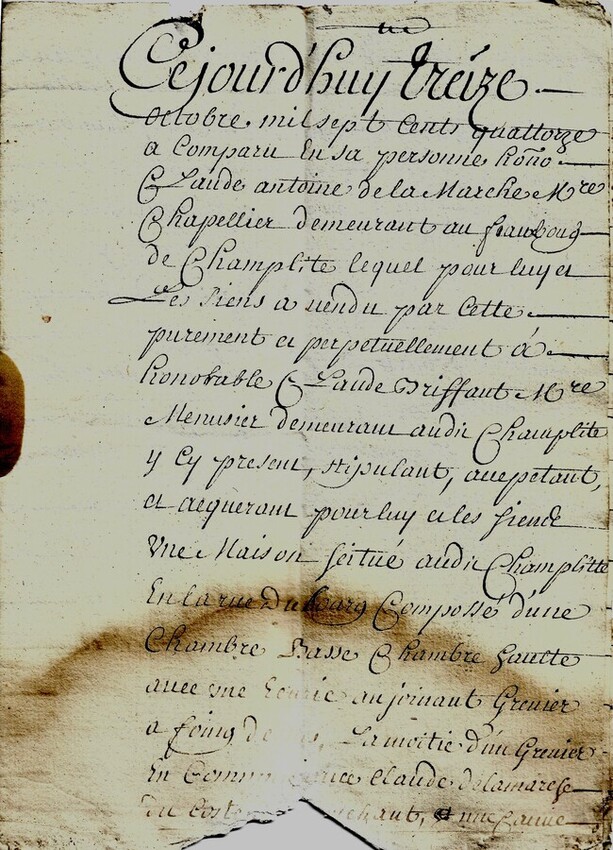 Cejourd'huy treize
octobre mil sept cents quattorze
a Comparu En sa personne hono
Claude antoine de la Marche Mre
Chapellier demeurant au fauboug
de Champlite lequel pour luy et
Les siens a vendu par Cette
purement et perpetuellement á
honorable Claude Briffaut Mre
Menusier demeurant audit Champlite
y Cy present, stipulant, acceptant,
et acquerant pour luy et les siens
Vne Maison scitué audit Champlitte
En la rue du bourg Composse d'une
Chambre Basse Chambre haulte
avec vne Ecurie au joinant Grenier
a foing La moitie d'un Grenier
En Claude delamarche
Du Coste et une Cauue